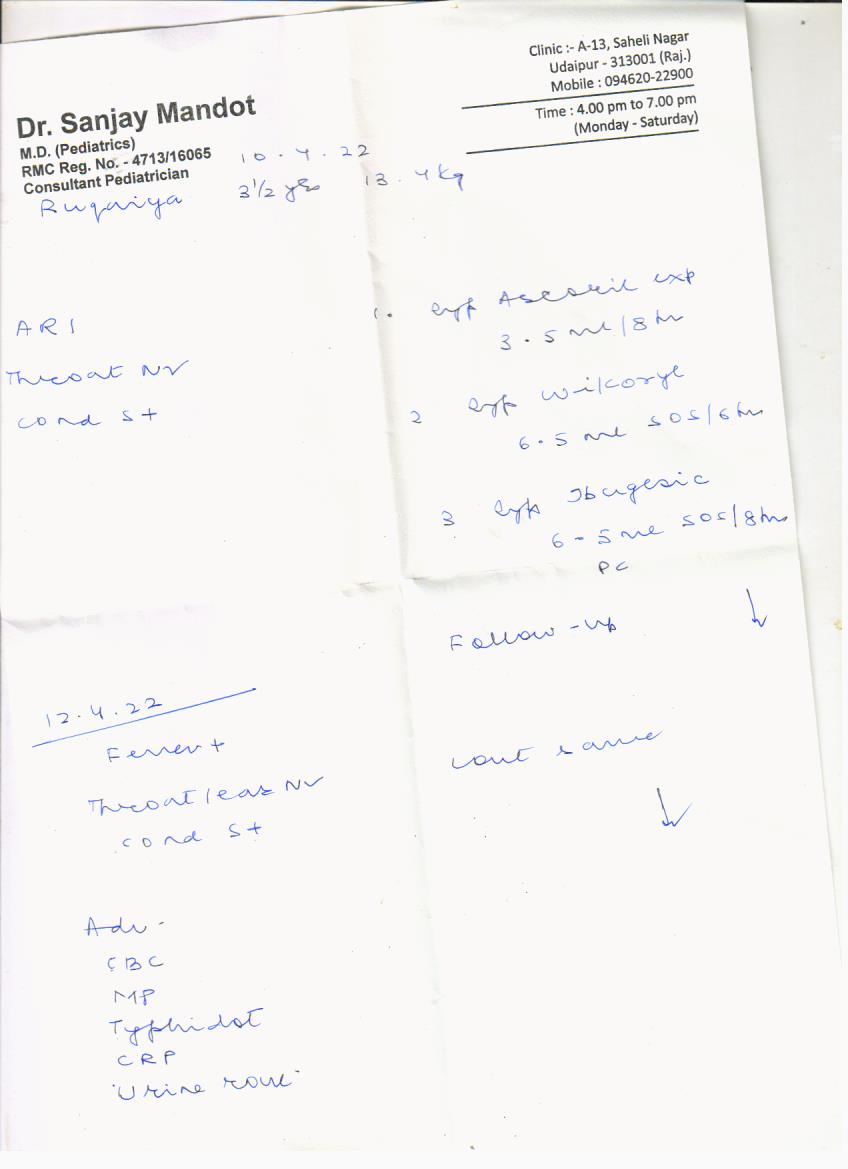 Clinic :- A-13, Saheli Nagar
Udaipur - 313001 (Raj.)
Mobile : 094620-22900
Time : 4.00 pm to 7.00 pm
(Monday - Saturday)
Dr. Sanjay Mandot
M.D. (Pediatrics)
RMC Reg. No. - 4713/16065
Consultant Pediatrician
10.4.22
Ruqaiya 3½ yrs 13.4kg
ARI
Throat NV
cond S+
1. Syp Ascoril exp
3.5 ml/8 hr
2 Syp Wikoryl
6.5 ml SOS/6 hrs
3 Syp Ibugesic
6-5 ml SOS/8 hrs
PC
Follow-up
12.4.22
Fever +
Throat/ear NV
cond S+
cont same
Adv -
CBC
MP
Typhidot
CRP
Urine rout